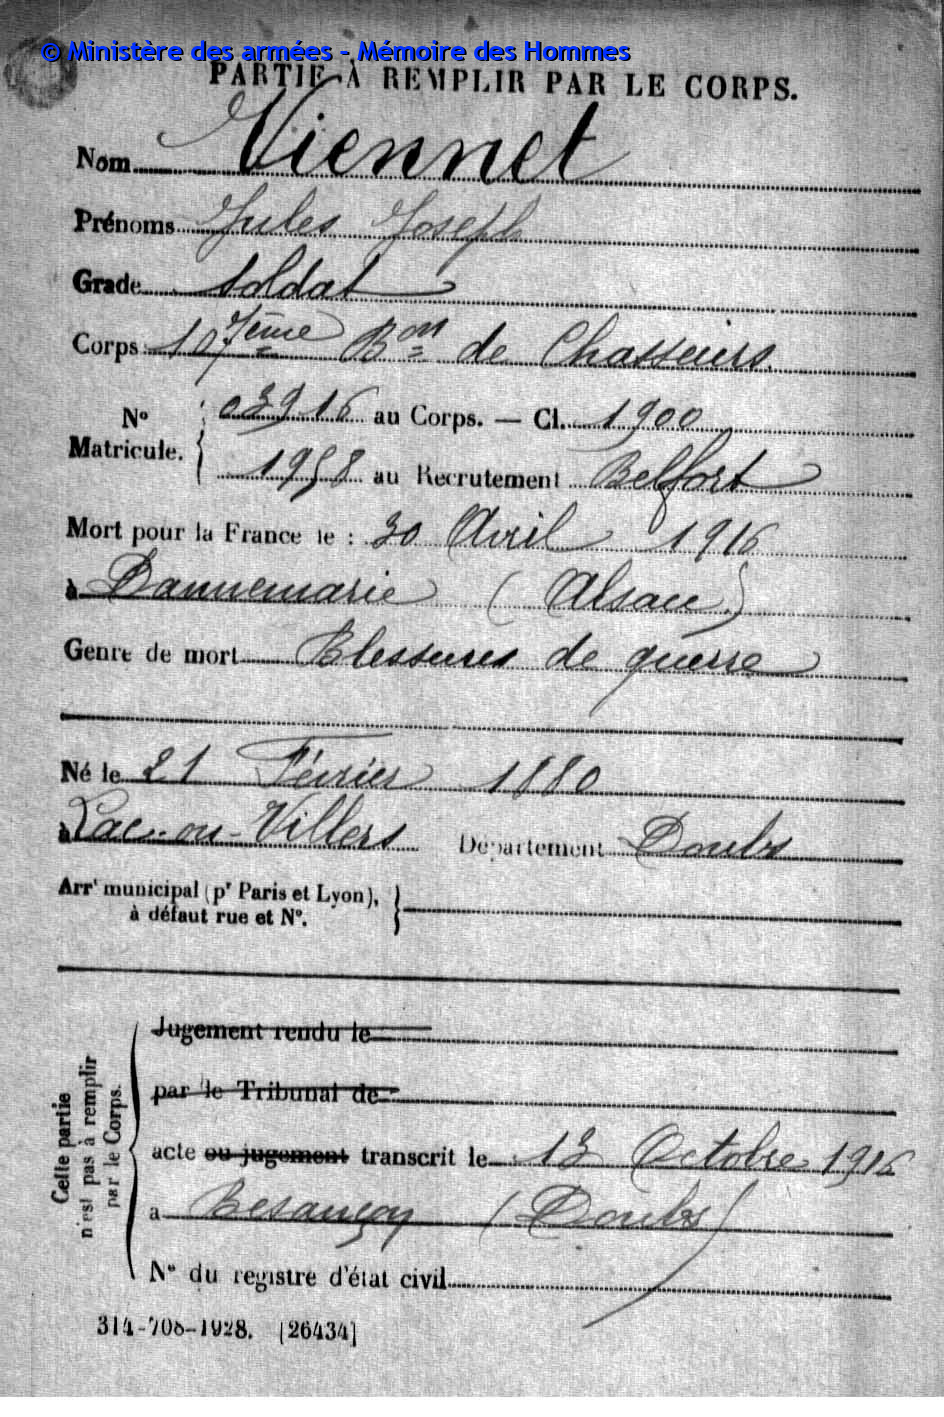 © Ministère des armées - Mémoire des Hommes
PARTIE À REMPLIR PAR LE CORPS.
Nom Viennet
Prénoms Jules Joseph
Grade Soldat
Corps 107ème Bon de Chasseurs.
No 03916 au Corps. — Cl. 1900
Matricule. 1958 au Recrutement Belfort
Mort pour la France le : 30 Avril 1916
à Dannemarie (Alsace)
Genre de mort Blessures de guerre
Né le 21 Février 1880
à Lac-ou-Villers Département Doubs
Arrt municipal (pr Paris et Lyon),
à défaut rue et No.
Cette partie
n'est pas à remplir
par le Corps.
Jugement rendu le
par le Tribunal de
acte ou jugement transcrit le 13 Octobre 1916
à Besançon (Doubs)
No du registre d'état civil
314-708-1928. [26434]